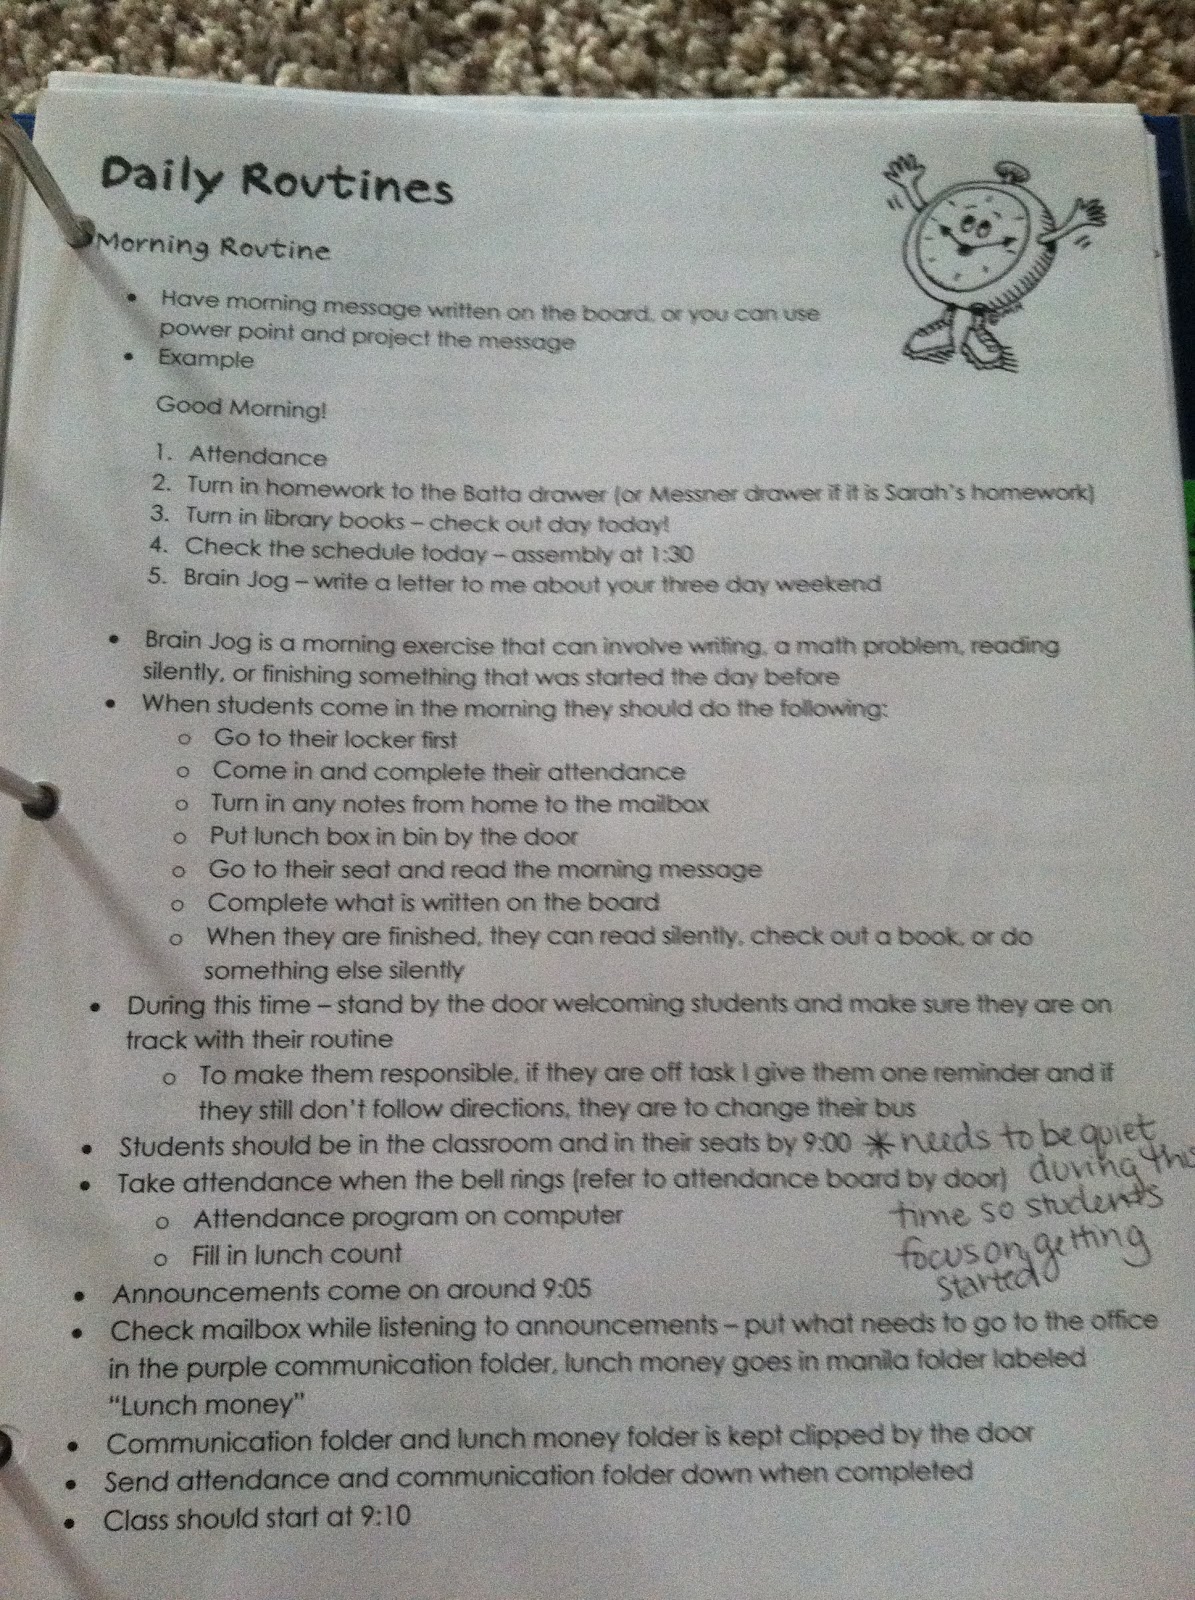 Daily Routines
Morning Routine
• Have morning message written on the board, or you can use
power point and project the message
• Example
Good Morning!
1. Attendance
2. Turn in homework to the Batta drawer (or Messner drawer if it is Sarah's homework)
3. Turn in library books – check out day today!
4. Check the schedule today – assembly at 1:30
5. Brain Jog – write a letter to me about your three day weekend
• Brain Jog is a morning exercise that can involve writing, a math problem, reading
silently, or finishing something that was started the day before
• When students come in the morning they should do the following:
o Go to their locker first
o Come in and complete their attendance
o Turn in any notes from home to the mailbox
o Put lunch box in bin by the door
o Go to their seat and read the morning message
o Complete what is written on the board
o When they are finished, they can read silently, check out a book, or do
something else silently
• During this time – stand by the door welcoming students and make sure they are on
track with their routine
o To make them responsible, if they are off task I give them one reminder and if
they still don't follow directions, they are to change their bus
• Students should be in the classroom and in their seats by 9:00 * needs to be quiet
during this
• Take attendance when the bell rings (refer to attendance board by door)
time so students
o Attendance program on computer
focus on getting
o Fill in lunch count
started
• Announcements come on around 9:05
• Check mailbox while listening to announcements – put what needs to go to the office
in the purple communication folder, lunch money goes in manila folder labeled
"Lunch money"
• Communication folder and lunch money folder is kept clipped by the door
• Send attendance and communication folder down when completed
• Class should start at 9:10